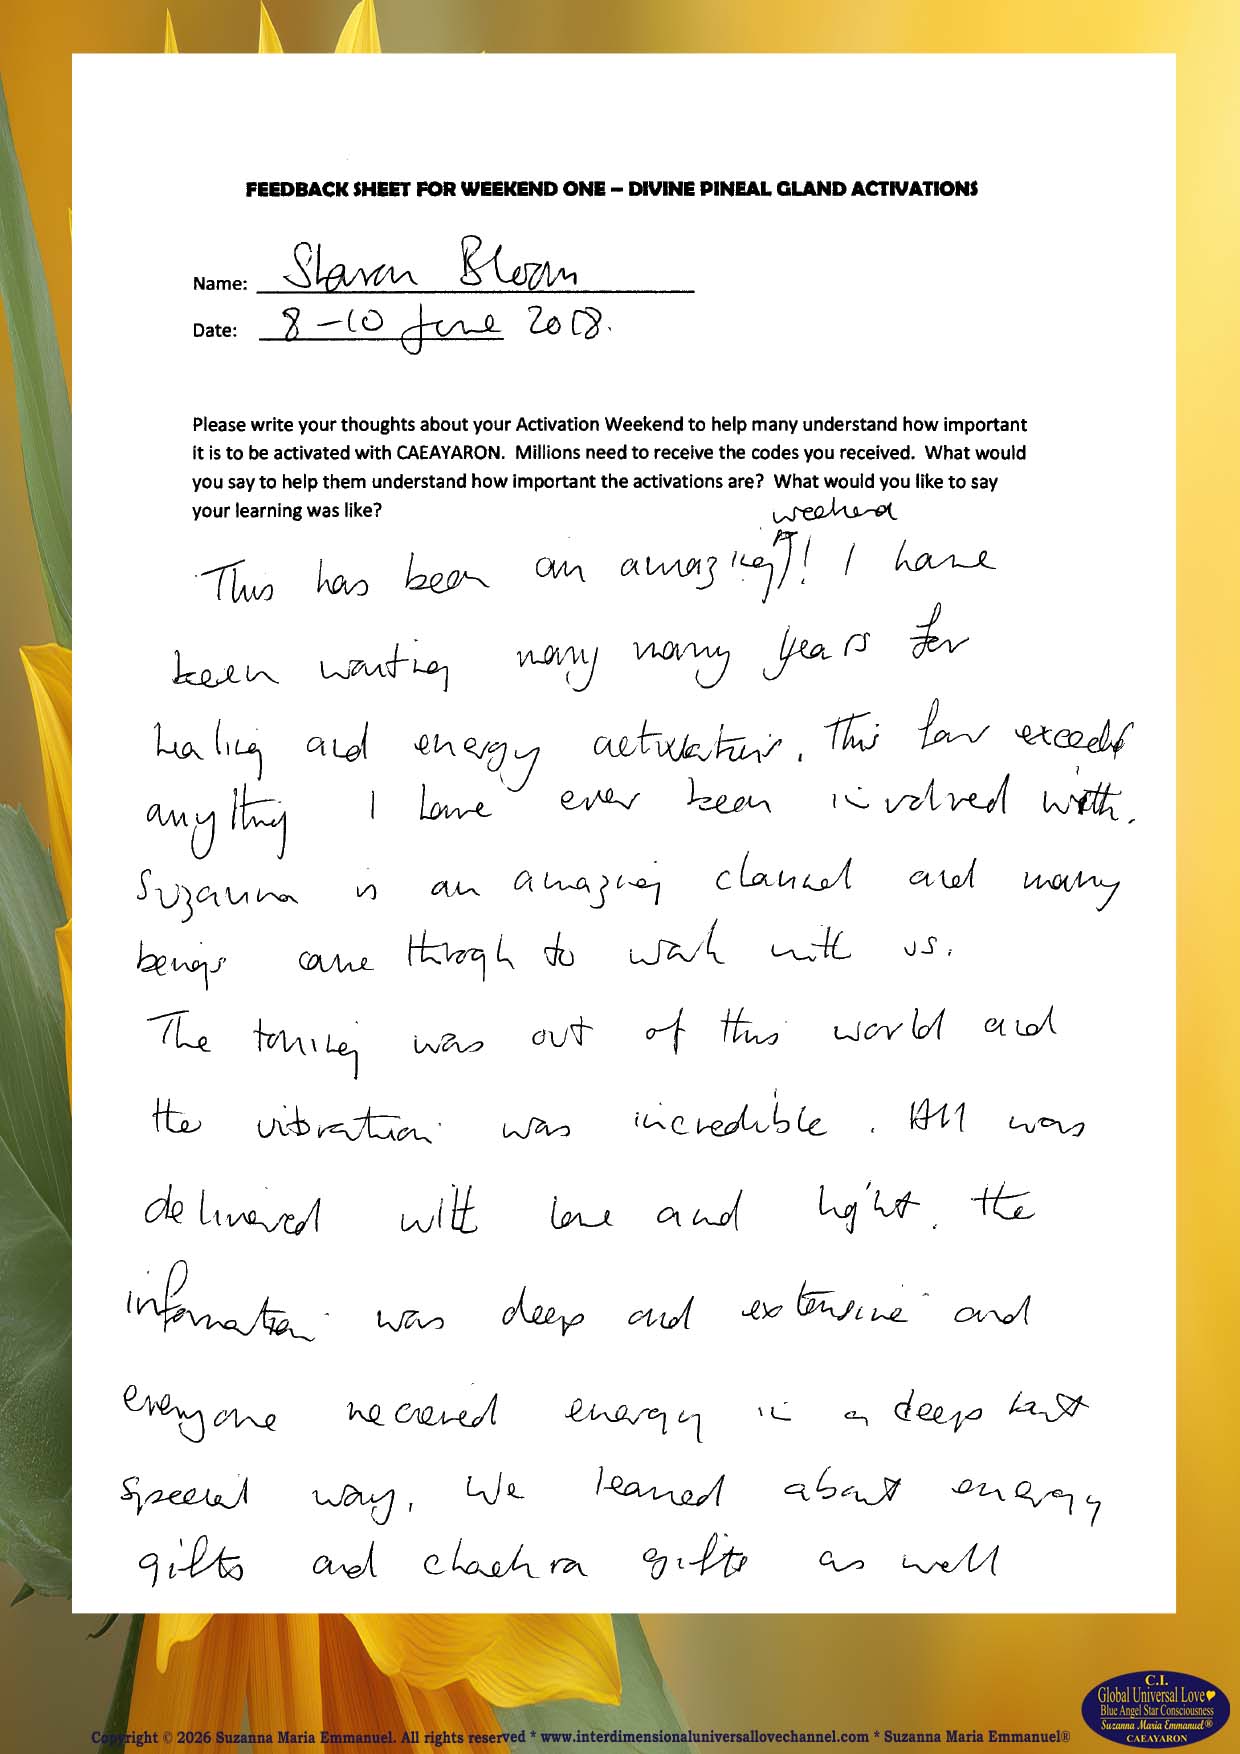 FEEDBACK SHEET FOR WEEKEND ONE – DIVINE PINEAL GLAND ACTIVATIONS
Name: Sharon Bloom
Date: 8-10 June 2018.
Please write your thoughts about your Activation Weekend to help many understand how important
it is to be activated with CAEAYARON. Millions need to receive the codes you received. What would
you say to help them understand how important the activations are? What would you like to say
your learning was like?
weekend
This has been an amazing ! I have
been waiting many many years for
healing and energy activations. This far exceeds
anything I have ever been involved with.
Suzanna is an amazing channel and many
beings came through to work with us.
The toning was out of this world and
the vibration was incredible. All was
delivered with love and light. The
information was deep and extensive and
everyone received energy in a deep but
special way. We learned about energy
gifts and chakra gifts as well
C.I.
Global Universal Love
Blue Angel Star Consciousness
Suzanna Maria Emmanuel®
CAEAYARON
Copyright © 2026 Suzanna Maria Emmanuel. All rights reserved * www.interdimensionaluniversallovechannel.com * Suzanna Maria Emmanuel®